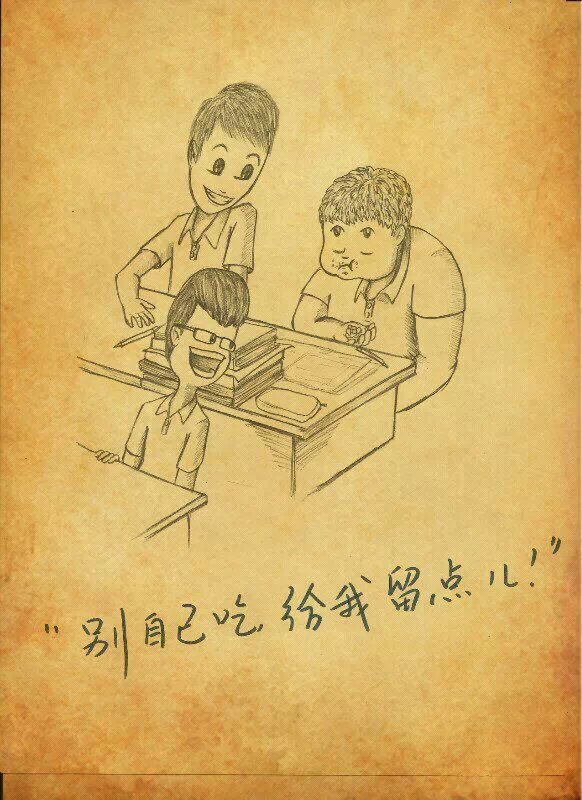 "别自己吃给我留点儿!"